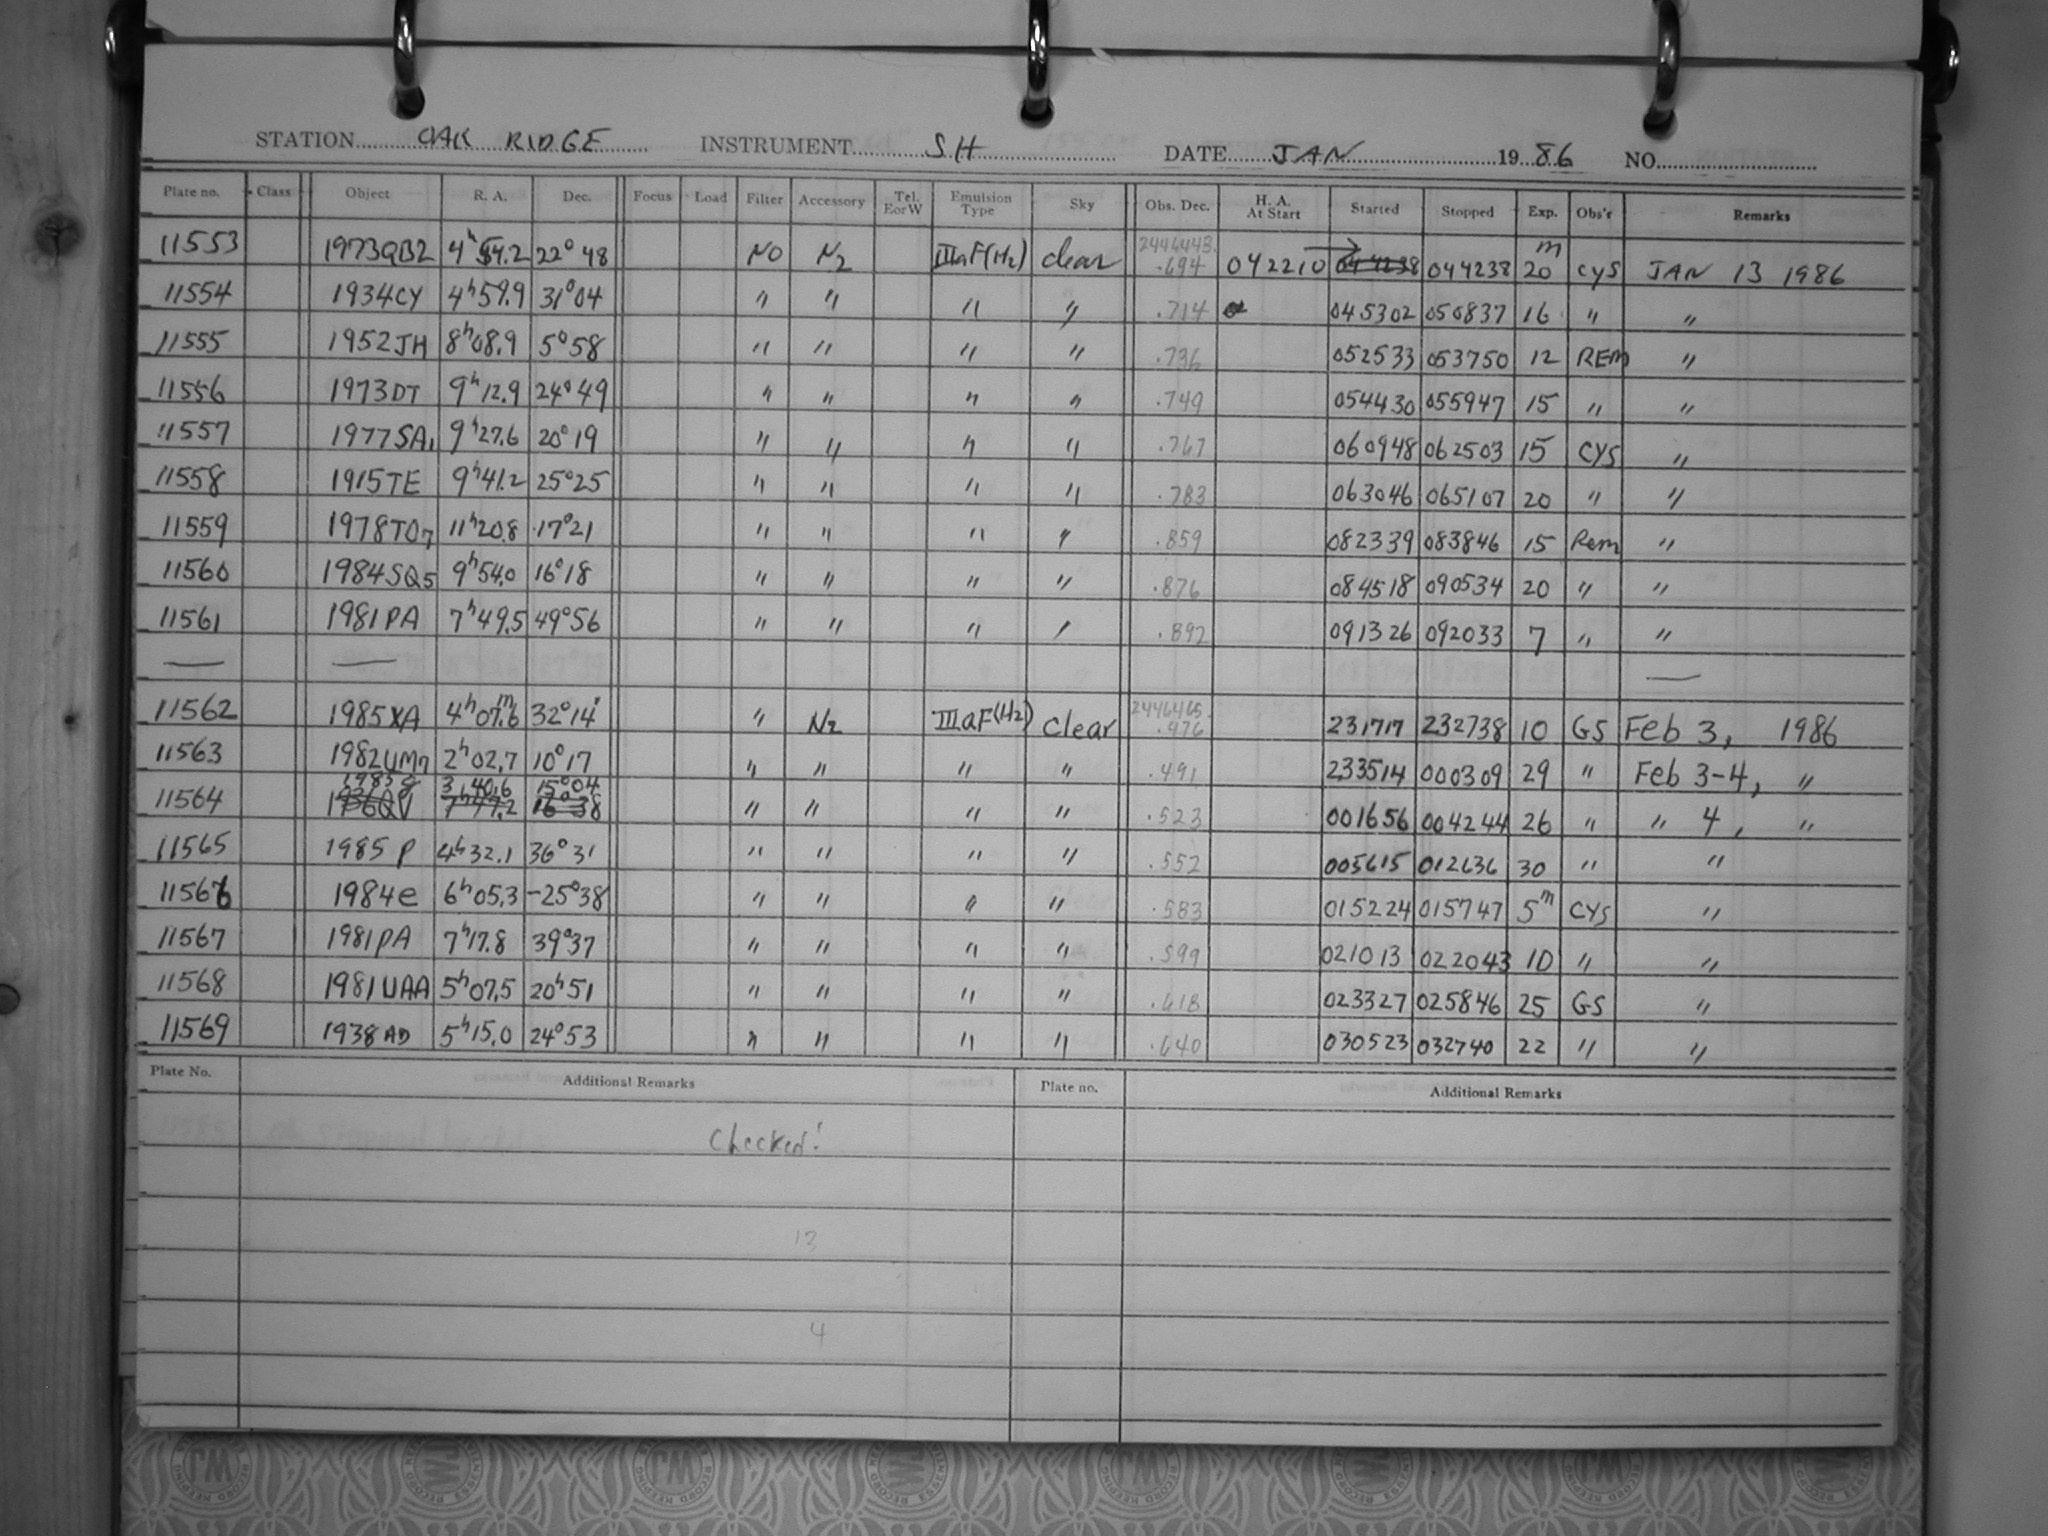 STATION OAK RIDGE INSTRUMENT SH DATE JAN 19 86 NO.
Plate no. Class Object R. A. Dec. Focus Load Filter Accessory Tel. E or W Emulsion Type Sky Obs. Dec. H. A. At Start Started Stopped Exp. Obs'r Remarks
11553 1973QB2 4h54.2 22°48 NO N2 IIIaF(H2) clear 2446443. .694 042210 → 044238 20m CYS JAN 13 1986
11554 1934CY 4h59.9 31°04 " " " " .714 045302 050837 16 " "
11555 1952JH 8h08.9 5°58 " " " " .736 052533 053750 12 REM "
11556 1973DT 9h12.9 24°49 " " " " .749 054430 055947 15 " "
11557 1977SA1 9h27.6 20°19 " " " " .767 060948 062503 15 CYS "
11558 1915TE 9h41.2 25°25 " " " " .783 063046 065107 20 " "
11559 1978TO7 11h20.8 17°21 " " " " .859 082339 083846 15 Rem "
11560 1984SQ5 9h54.0 16°18 " " " " .876 084518 090534 20 " "
11561 1981PA 7h49.5 49°56 " " " " .892 091326 092033 7 " "
— — —
11562 1985XA 4h07.m6 32°14' " N2 IIIaF(H2) Clear 2446465. .476 231717 232738 10 GS Feb 3, 1986
11563 1982UM7 2h02.7 10°17 " " " " .491 233514 000309 29 " Feb 3-4, "
11564 3h40.6 15°04 " " " " .523 001656 004244 26 " " 4, "
11565 1985P 4h32.1 36°31 " " " " .552 005615 012636 30 " "
11566 1984e 6h05.3 -25°38 " " " " .583 015224 015747 5m CYS "
11567 1981PA 7h17.8 39°37 " " " " .599 021013 022043 10 " "
11568 1981UAA 5h07.5 20h51 " " " " .618 023327 025846 25 GS "
11569 1938AD 5h15.0 24°53 " " " " .640 030523 032740 22 " "
Plate No. Additional Remarks Plate no. Additional Remarks
Checked!
13
4